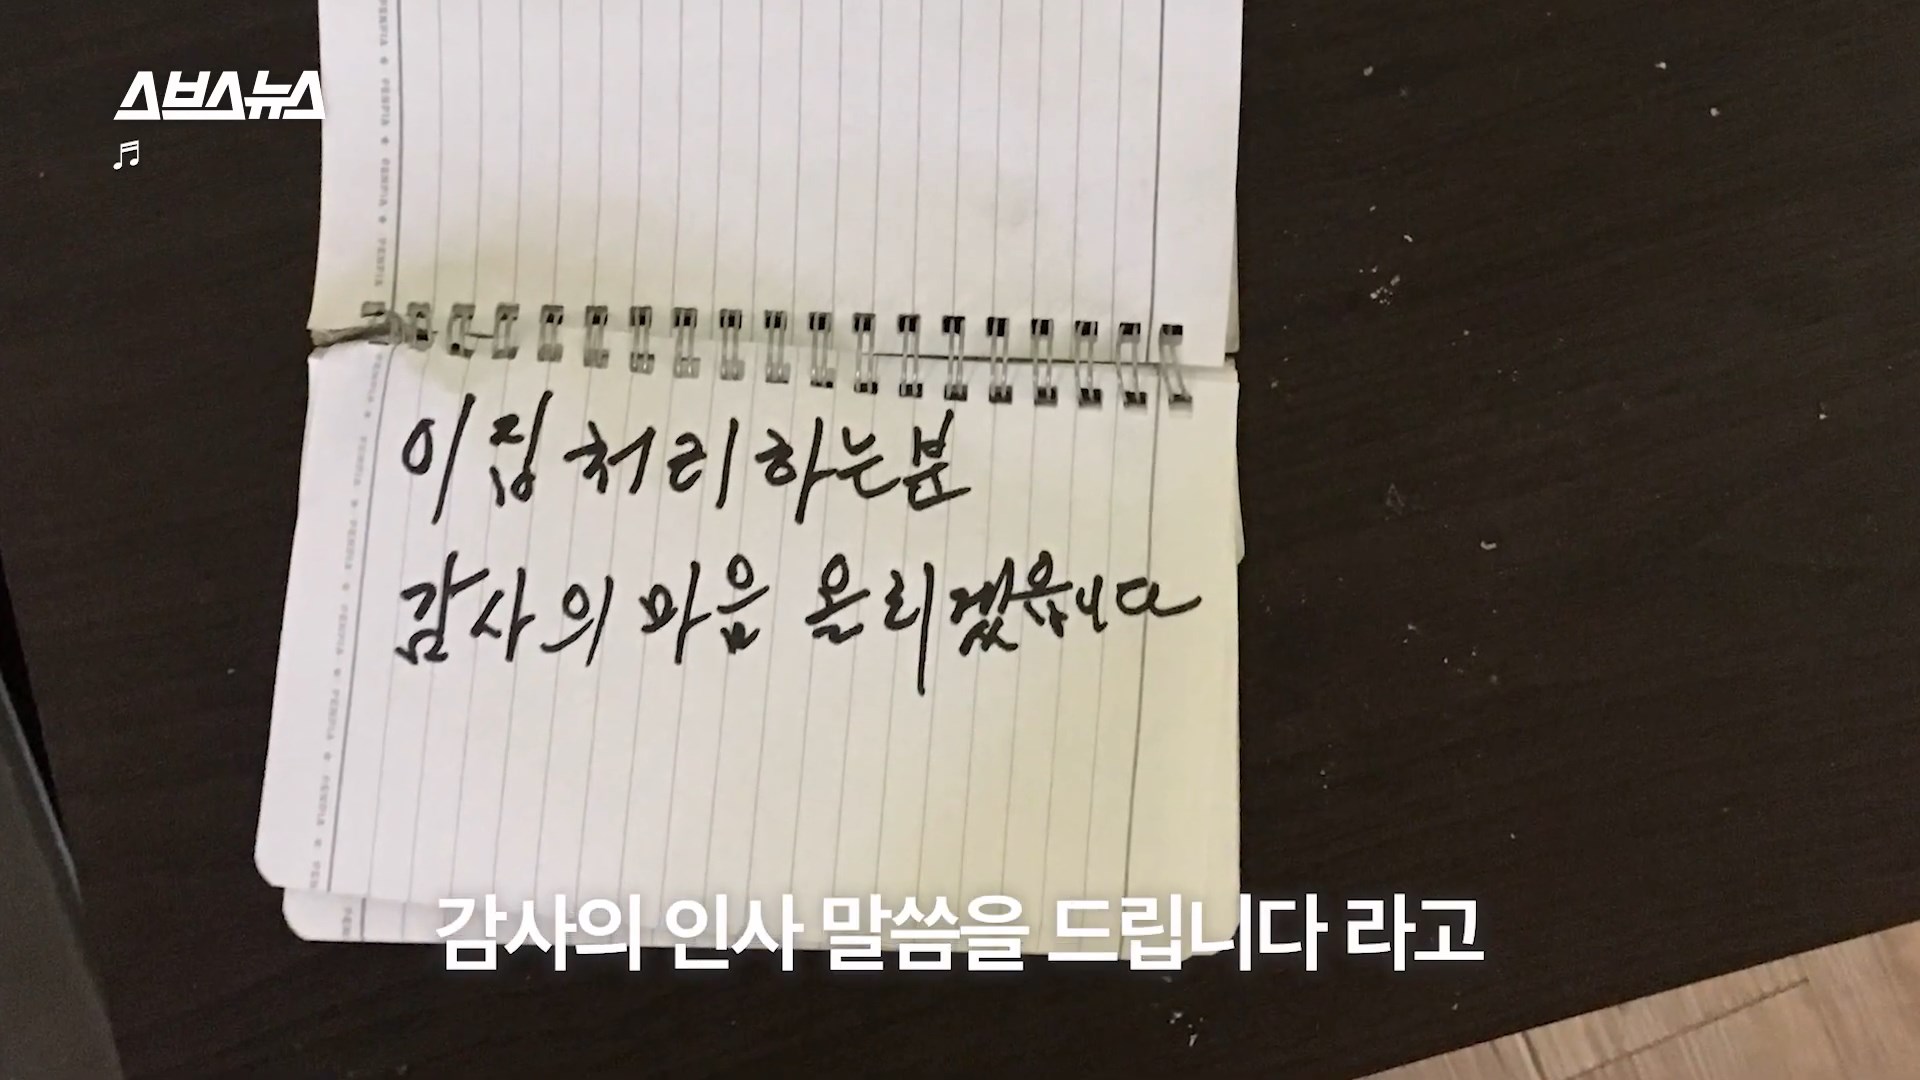 스브스뉴스
이 집 처리 하는 분
감사의 마음 올리겠읍니다
감사의 인사 말씀을 드립니다 라고
PENPIA